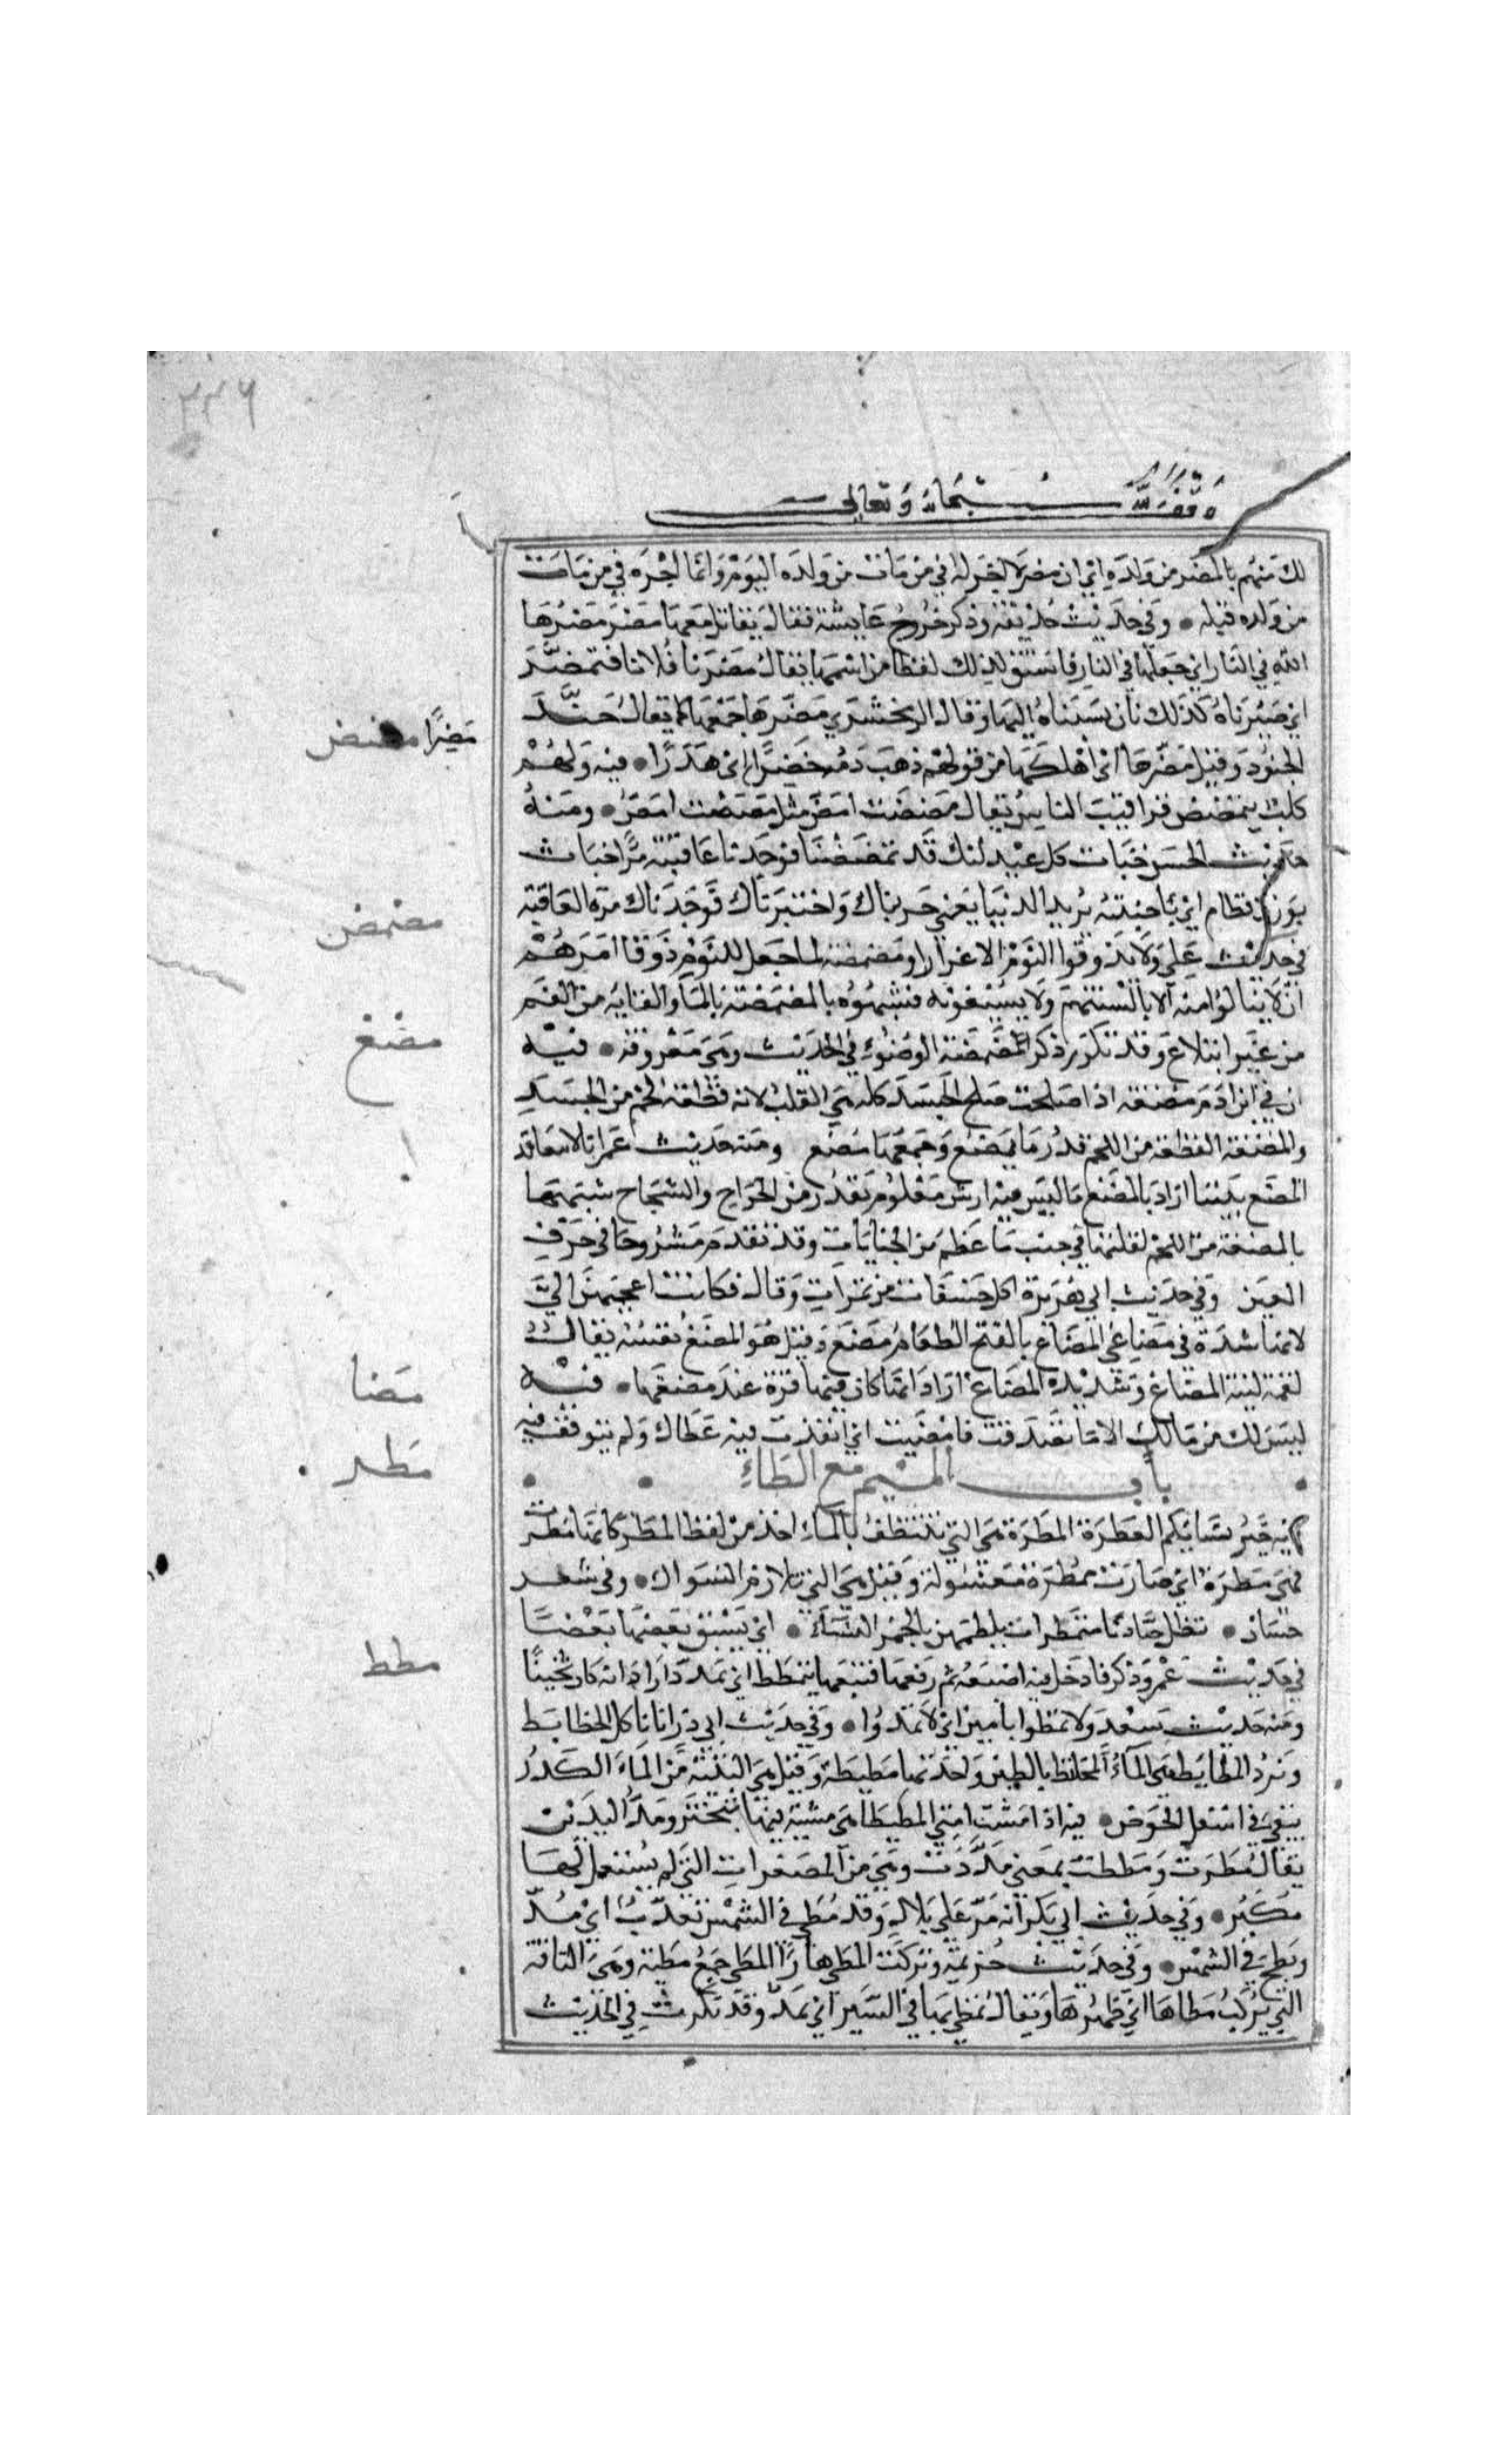 ٣٣٦
وقف لله سبحانه وتعالى
لك منهم بالمضر من ولده اي ان مضر لا اجر له في من مات من ولده اليوم وانما اجره في من مات
من ولده قبله • وفي حديث حذيفة وذكر خروج عايشة فقال يقاتل معها مضر مضرها
الله في النار اي جعلها في النار فاشتق لذلك لفظا من اسمها يقال مضرنا فلانا فتمضر
اي صيرناه كذلك بان نسبناه اليها وقال الزمخشري مضرها جمعها كما يقال جند
الجنود وقيل مضرها اي اهلكها من قولهم ذهب دمه خضرا مضرا اي هدرا • فيه ولهم
كلب يتمضمض عراقيب الناس يقال مضضت امض مثل مصصت امص • ومنه
حديث الحسن خباث كل عيدانك قد مضضنا فوجدنا عاقبته مرا خباث
بوزن قطام اي يا خبيثة يريد الدنيا يعني جربناك واختبرناك فوجدناك مرة العاقبة
في حديث علي ولا تذوقوا النوم الا غرارا ومضمضة لما جعل للنوم ذوقا امرهم
ان لا ينالوا منه الا بالسنتهم ولا يسيغونه فشبهوه بالمضمضة بالماء والقايه من الفم
من غير ابتلاع وقد تكرر ذكر المضمضة الوضوء في الحديث وهي معروفة • فيه
ان في ابن ادم مضغة اذا صلحت صلح الجسد كله هي القلب لانه قطعة لحم من الجسد
والمضغة القطعة من اللحم قدر ما يمضغ وجمعها مضغ ومنه حديث عمر انا لا نتعاقد
المضغ بيننا اراد بالمضغ ما ليس فيه ارش معلوم مقدر من الجراح والشجاج شبهها
بالمضغة من اللحم لقلتها في جنب ما عظم من الجنايات وقد تقدم مشروحا في حرف
العين وفي حديث ابي هريرة اكل حشفات من تمرات وقال فكانت اعجبهن الي
لانها شدت في مضاغي المضاغ بالفتح الطعام يمضغ وقيل هو المضغ نفسه يقال
لقمة لينة المضاغ وشديدة المضاغ اراد انها كان فيها قوة عند مضغها • فيه
ليس لك من مالك الا ما تصدقت فامضيت اي انفذت فيه عطاك ولم تتوقف فيه
باب الميم مع الطاء
فيه خير نسايكم العطرة المطرة هي التي تتنظف بالماء اخذ من لفظ المطر كانها مطرت
فهي مطرة اي صارت ممطرة مغسولة وقيل هي التي تلازم السواك • وفي شعر
حسان • تظل جيادنا متمطرات يلطمهن بالخمر النساء • اي يسبق بعضها بعضا
في حديث عمر وذكر فادخل فيه اصبعه ثم رفعها فتبعها يتمطط اي يتمدد اراد انه كان ثخينا
ومنه حديث سعد ولا تمطوا بامين اي لا تمدوا • وفي حديث ابي ذر انا ناكل الخطايط
ونرد المطايط هي الماء المختلط بالطين واحدتها مطيطة وقيل هي البقية من الماء الكدر
يبقى في اسفل الحوض • فيه اذا مشت امتي المطيطا هي مشية فيها تبختر ومد اليدين
يقال مطوت ومططت بمعنى مددت وهي من المصغرات التي لم يستعمل لها
مكبر • وفي حديث ابي بكر انه مر على بلال وقد مطي في الشمس يعذب اي مد
وبطح في الشمس • وفي حديث خزيمة وتركت المطي هارا المطي جمع مطية وهي الناقة
التي يركب مطاها اي ظهرها ويقال يمطي بها في السير اي يمد وقد تكررت في الحديث
مضرا مضض
مضمض
مضغ
مضا
مطر
مطط